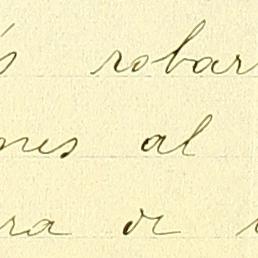 s robar
ones al
ra de